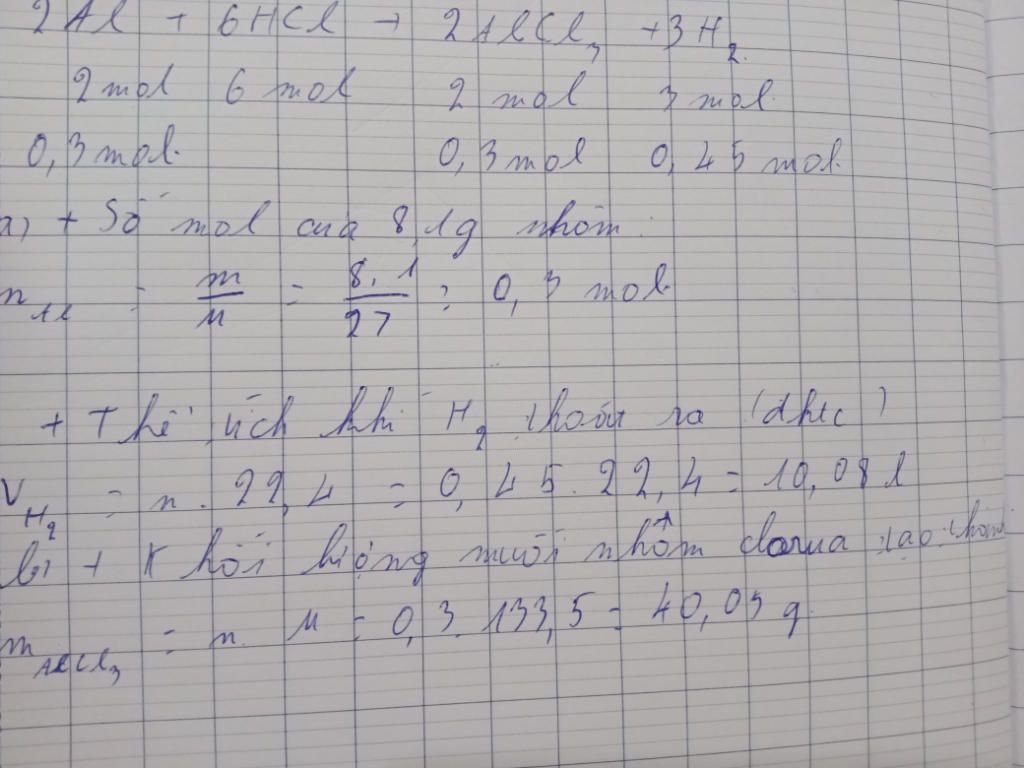 2Al + 6HCl → 2AlCl₃ + 3H₂
2 mol 6 mol 2 mol 3 mol
0,3 mol 0,3 mol 0,45 mol
a) + Số mol của 8,1g nhôm.
n Al = m/M = 8,1/27 = 0,3 mol
+ Thể tích khí H₂ thoát ra (đktc)
V H₂ = n. 22,4 = 0,45.22,4 = 10,08 l
b) + Khối lượng muối nhôm clorua tạo thành
m AlCl₃ = n. M = 0,3.133,5 = 40,05 g